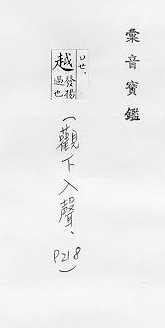 彙音寶鑑
ㄩㄝˋ
越
發揚
過也
(觀下入聲、P218)